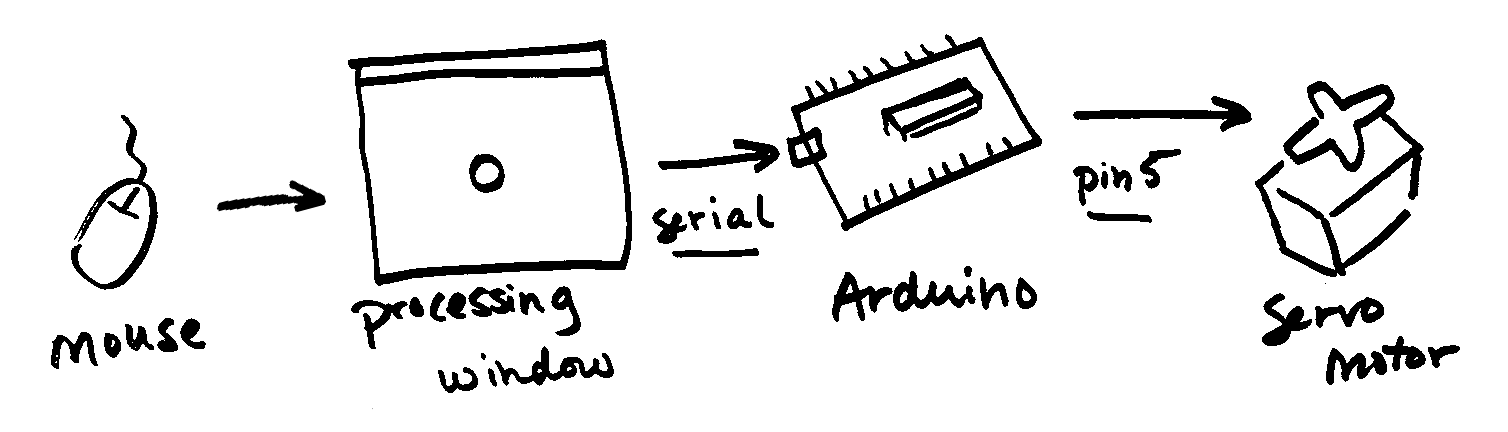 mouse
processing
window
serial
Arduino
pin 5
Servo
Motor